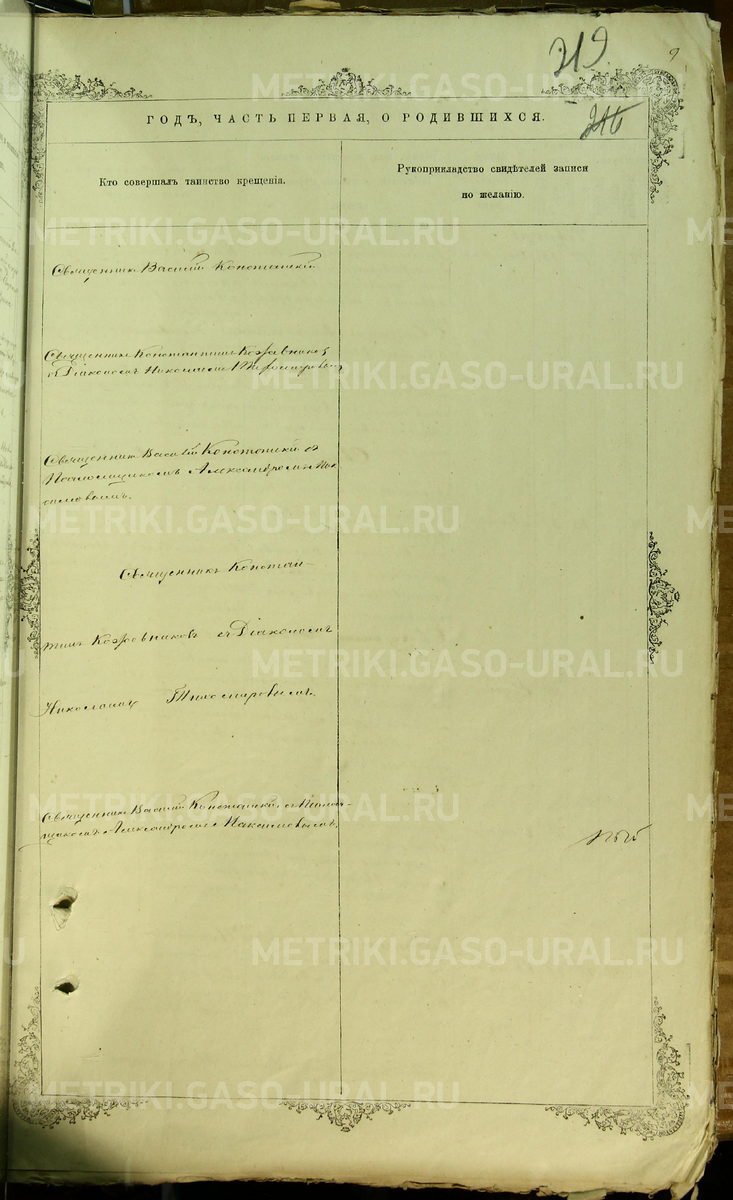 219.
9
216
ГОДЪ, ЧАСТЬ ПЕРВАЯ, О РОДИВШИХСЯ.
Кто совершалъ таинство крещенія.
Рукоприкладство свидѣтелей записи
по желанію.
Священникъ Василій
Священникъ Константинъ Кожевниковъ
съ Діакономъ Николаемъ Тихомировымъ
Священникъ Василій съ
Псаломщикомъ Александромъ Мак
симовымъ.
Священникъ Констан-
тинъ Кожевниковъ съ Діакономъ
Николаемъ Тихомировымъ.
Священникъ Василій съ Псалом-
щикомъ Александромъ Максимовымъ.
METRIKI.GASO-URAL.RU